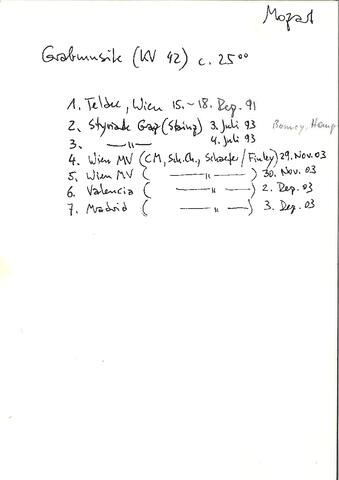 Mozart
Grabmusik (KV 42) c. 25⁰⁰
1. Teldec, Wien 15. - 18. Dez. 91
2. Styriarte Graz (Stainz) 3. Juli 93 Bonney, Hamp
3. —〃— 4. Juli 93
4. Wien MV (CM, Sch.Ch., Schaefer / Finley) 29. Nov. 03
5. Wien MV ( —〃— ) 30. Nov. 03
6. Valencia ( —〃— ) 2. Dez. 03
7. Madrid ( —〃— ) 3. Dez. 03